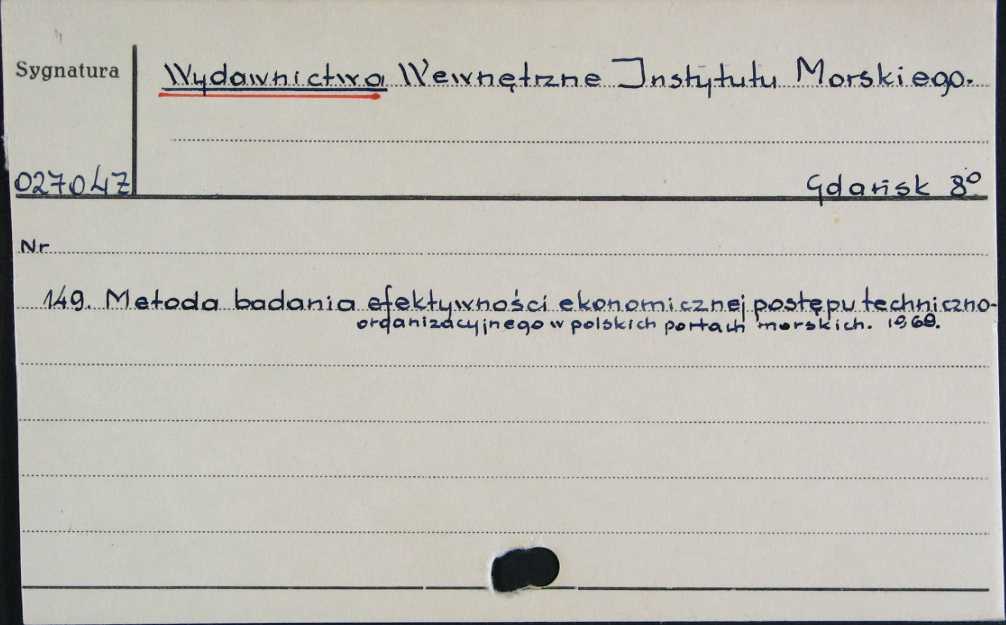 Sygnatura
Wydawnictwa Wewnętrzne Instytutu Morskiego.
02704Z
Gdańsk 8°
Nr
149. Metoda badania efektywności ekonomicznej postępu techniczno-
organizacyjnego w polskich portach morskich. 1968.